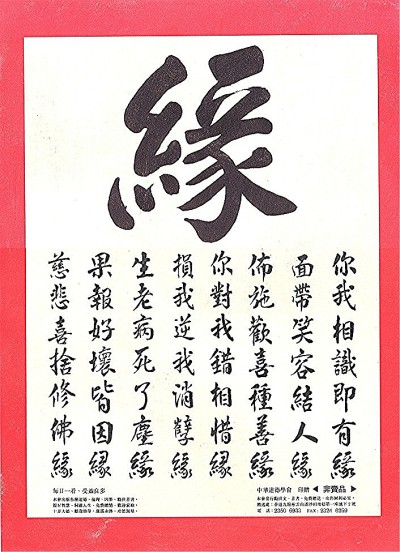 緣
你我相識即有緣
面帶笑容結人緣
佈施歡喜種善緣
你對我錯相惜緣
損我逆我消孽緣
生老病死了塵緣
果報好壞皆因緣
慈悲喜捨修佛緣
印贈 ◀ 非賣品 ▶
電話：2350 6933 FAX：2324 6259
每日一看、受益良多